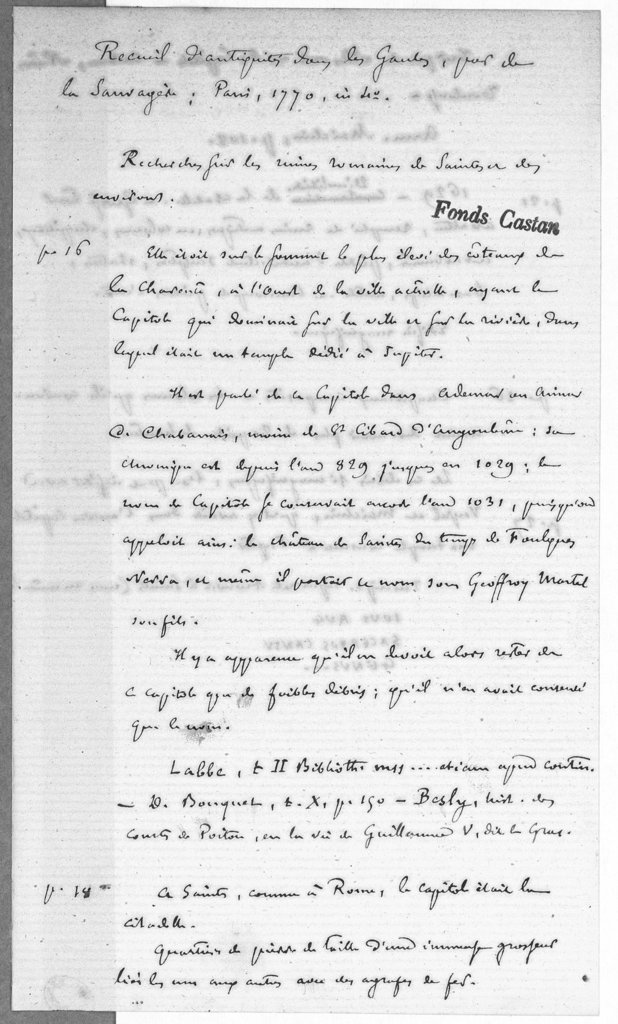 Recueil d'antiquités dans les Gaules, par de
la Sauvagère; Paris, 1770, in 4º.
Recherches sur les ruines romaines de Saintes et des
environs.
Fonds Castan
p. 16 Elle étoit sur le sommet le plus élevé des côteaux de
la Charente, à l'Ouest de la ville actuelle, ayant le
Capitole qui dominait sur la ville et sur la rivière, dans
lequel était un temple dédié à Jupiter.
Il est parlé de ce Capitole dans Ademar ou Aimar
de Chabanais, moine de St Cibard d'Angoulême; sa
chronique est depuis l'an 829 jusques en 1029; le
nom de Capitole se conservait encore l'an 1031, puisqu'on
appeloit ainsi le château de Saintes du temps de Foulques
Nerra, et même il portait ce nom sous Geoffroy Martel
son fils.
Il y a apparence qu'il ne devoit alors rester de
ce capitole que de foibles débris; qu'il n'en avait conservé
que le nom.
Labbe, t. II Biblioth. mss .... etiam apud
— D. Bouquet, t. X, p. 190 — Besly, hist. des
comtes de Poitou, en la vie de Guillaume V, dit le Gros.
p. 18 A Saintes, comme à Rome, le capitole était la
citadelle.
Quartiers de pierre de taille d'une immense grosseur
liés les uns aux autres avec des agrafes de fer.